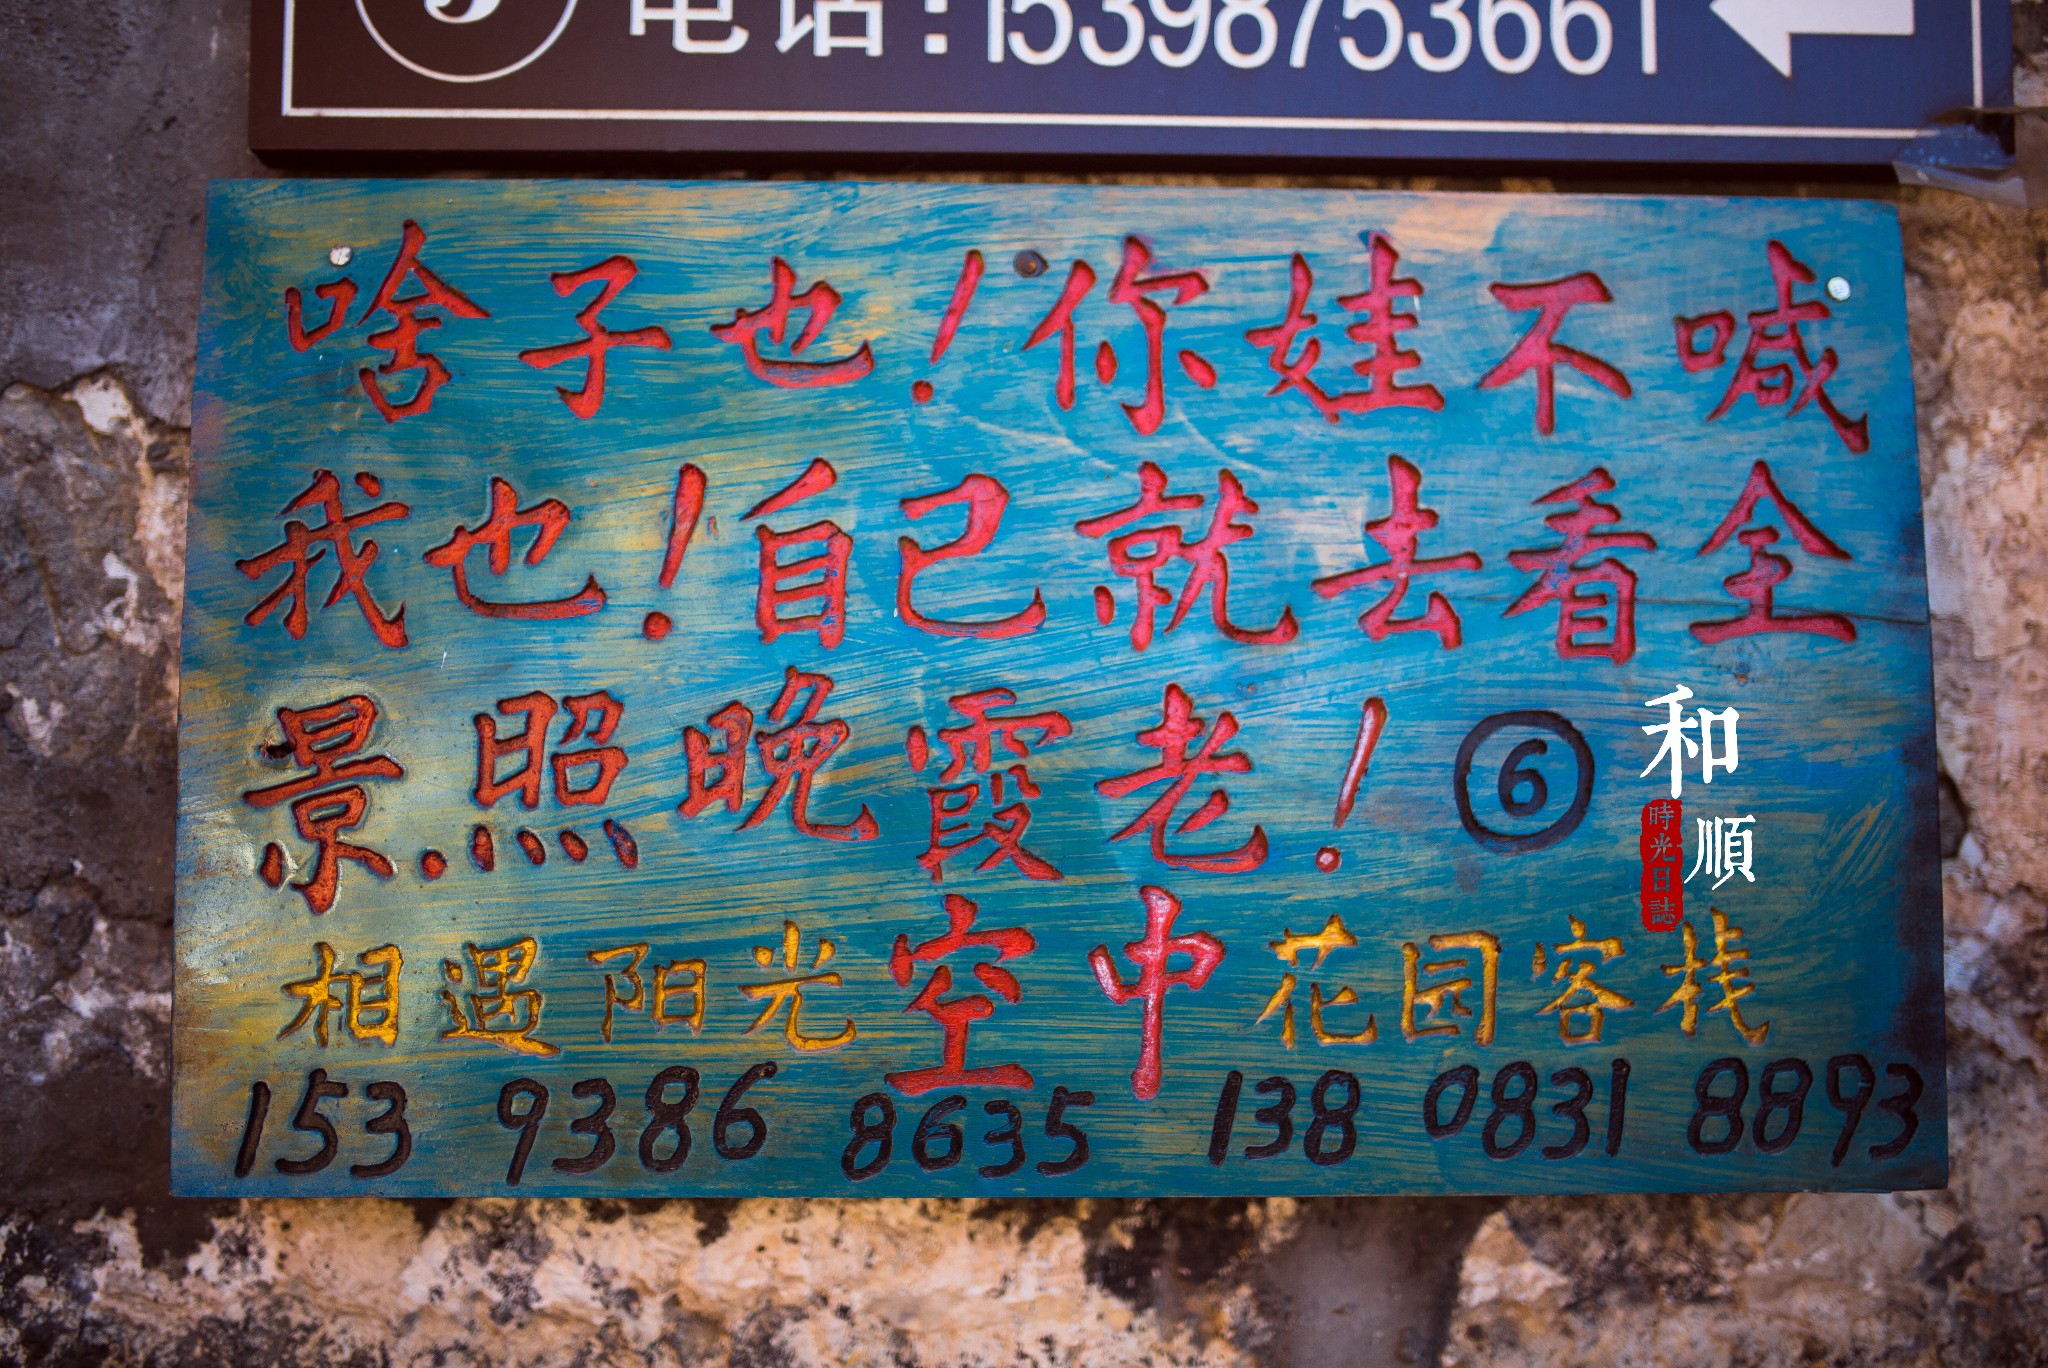 电话:15398753661
啥子也!你娃不喊
我也!自己就去看全
景.照晚霞老!⑥
相遇阳光空中花园客栈
153 9386 8635 138 0831 8893
和順
時光日誌